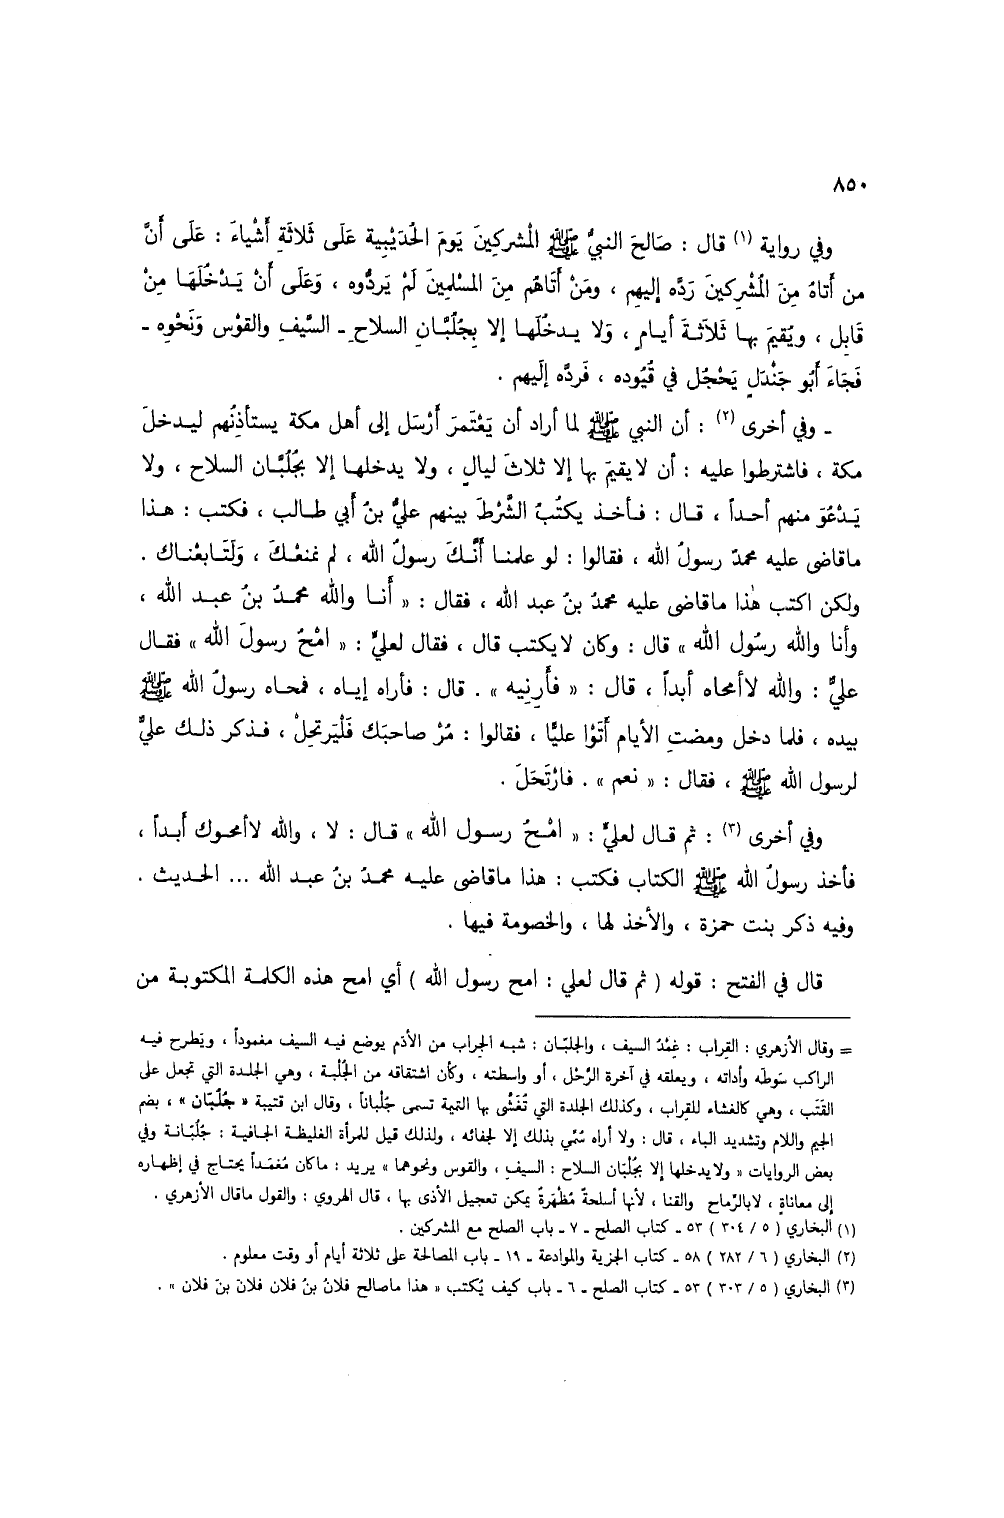 ٨٥٠
وفي رواية (١) قال : صَالحَ النبيُّ ﷺ المُشركِينَ يَومَ الحُدَيْبِيةِ عَلَى ثَلاثَةِ أَشْياءَ : عَلَى أَنَّ
من أَتاهُ مِنَ المُشْرِكينَ رَدَّه إليهِم ، ومَنْ أتَاهُم مِنَ المسْلِمِينَ لَمْ يَردُّوه ، وَعَلَى أَنْ يَدْخُلَهَا مِنْ
قَابِل ، ويُقيمَ بها ثَلاَثةَ أيامٍ ، وَلا يدخُلَها إلا بِجُلُبَّانِ السلاحِ ـ السَّيفِ والقوْس وَنَحْوِه ـ
فَجَاءَ أَبُو جَنْدَلٍ يَحْجُل في قُيُوده ، فَردَّه إلَيهم .
ـ وفي أخرى (٢) : أن النبي ﷺ لما أراد أن يَعْتَمرَ أَرْسَل إلى أهل مكة يستأذِنُهم ليدخلَ
مكة ، فاشترطوا عليه : أن لا يقيمَ بها إلا ثلاثَ ليالٍ ، ولا يدخلها إلا بجُلُبَّان السلاح ، ولا
يَدْعُوَ منهم أحداً ، قال : فأخذ يكتُبُ الشَّرْطَ بينهم عليُّ بنُ أَبي طالب ، فكتب : هذا
ماقاضى عليه محمدٌ رسولُ الله ، فقالوا : لو علمنا أَنَّكَ رسولُ الله ، لم نمنعْكَ ، وَلَتَابعْناك .
ولكن اكتب هٰذا ماقاضى عليه محمدُ بنُ عبد الله ، فقال : « أَنا والله محمدُ بنُ عبد الله ،
وأنا والله رسُول الله » قال : وكان لايكتب قال ، فقال لعليٍّ : « امْحُ رسولَ الله » فقال
عليٌّ : والله لاأمحاه أبداً ، قال : « فأَرِنِيه » . قال : فأراه إياه ، فمحاه رسولُ الله ﷺ
بيده ، فلما دخل ومضتِ الأيام أتَوْا عليًّا ، فقالوا : مُرْ صاحبَك فَلْيَرتحِلْ ، فذكر ذلك عليٌّ
لرسول الله ﷺ ، فقال : « نعم » . فارْتَحَلَ .
وفي أخرى (٣) : ثم قال لعليٍّ : « امْحُ رسول الله » قال : لا ، والله لاأمحوك أَبداً ،
فأخذ رسولُ الله ﷺ الكتاب فكتب : هذا ماقاضى عليه محمدُ بنُ عبد الله ... الحديث .
وفيه ذكر بنت حمزة ، والأخذ لها ، والخصومة فيها .
قال في الفتح : قوله ( ثم قال لعلي : امح رسول الله ) أي امح هذه الكلمة المكتوبة من
= وقال الأزهري : القِراب : غِمْدُ السيف ، والجلبّان : شبه الجراب من الأدَم يوضع فيه السيف مغموداً ، ويَطرح فيه
الراكب سَوطَه وأداته ، ويعلقه في آخرة الرَّحْل ، أو واسطته ، وكأن اشتقاقه من الجُلْبة ، وهي الجلدة التي تجعل على
القَتَب ، وهي كالغشاء للقِراب ، وكذلك الجلدة التي تُغَشَّى بها التميمة تسمى جُلباناً ، وقال ابن قتيبة « جُلُبّان » ، بضم
الجيم واللام وتشديد الباء ، قال : ولا أراه سُمِّي بذلك إلا لجفائه ، ولذلك قيل للمرأة الغليظة الجافية : جُلُبّانة وفي
بعض الروايات « ولا يدخلها إلا بجُلُبّان السلاح : السيفِ ، والقوس ونحوهما » يريد : ماكان مُغمَداً يحتاج في إظهاره
إلى معاناةٍ ، لابالرّماح والقنا ، لأنها أسلحةٌ مُظْهَرةٌ يمكن تعجيل الأذى بها ، قال الهروي : والقول ماقال الأزهري .
(١) البخاري ( ٥ / ٣٠٤ ) ٥٣ ـ كتاب الصلح ـ ٧ ـ باب الصلح مع المشركين .
(٢) البخاري ( ٦ / ٢٨٢ ) ٥٨ ـ كتاب الجزية والموادعة ـ ١٩ ـ باب المصالحة على ثلاثة أيام أو وقت معلوم .
(٣) البخاري ( ٥ / ٣٠٣ ) ٥٣ ـ كتاب الصلح ـ ٦ ـ باب كيف يُكتب « هذا ماصالح فلانُ بنُ فلان فلانَ بنَ فلان » .